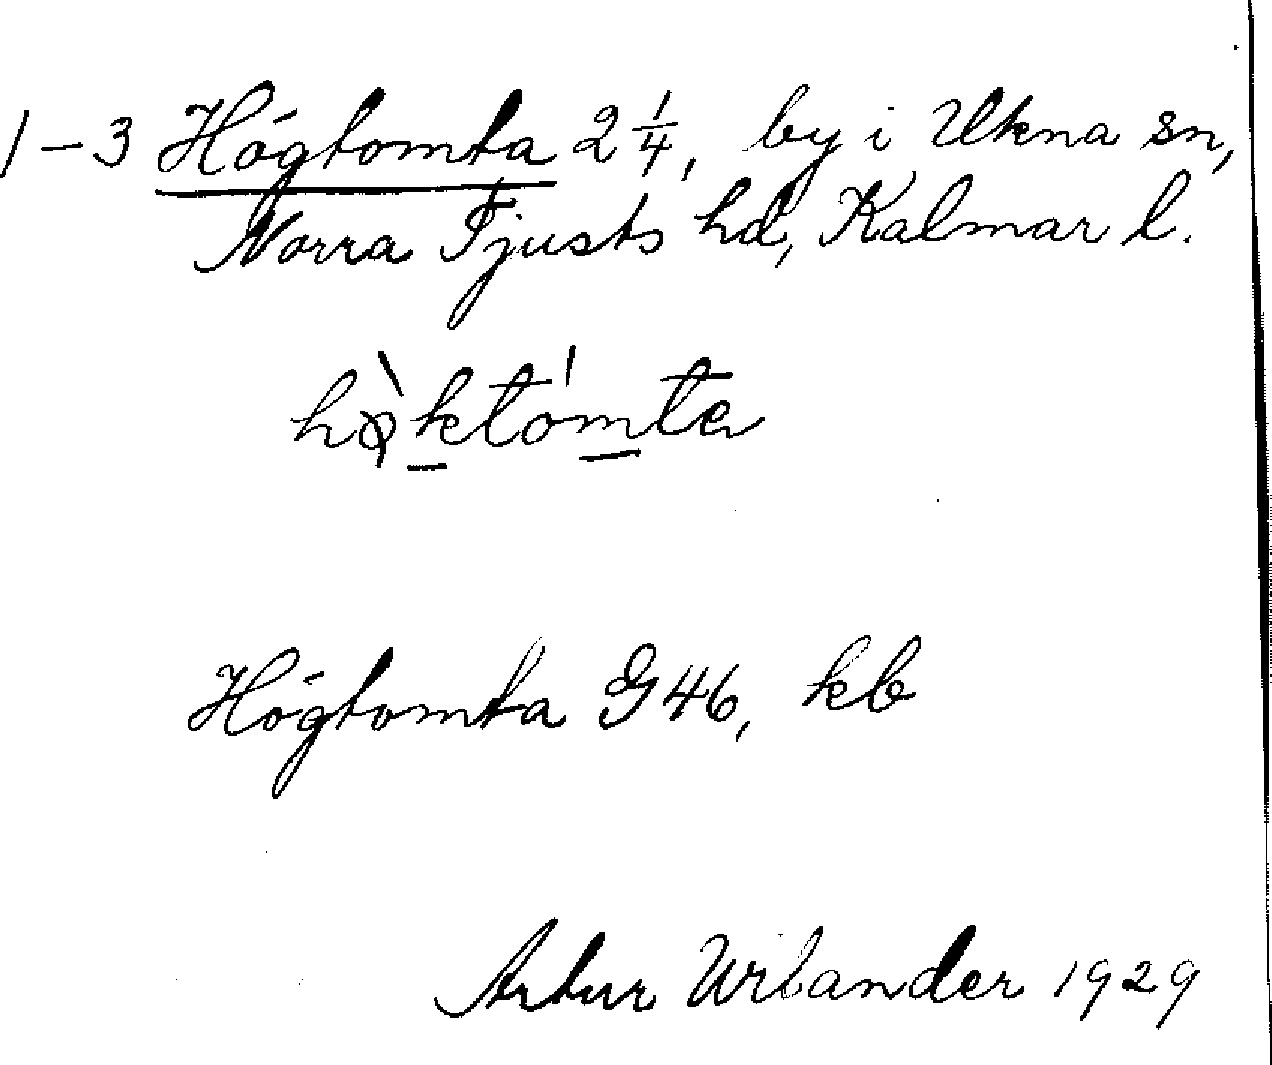 1-3 Högtomta 2 1/4, by i Ukna sn,
Norra Tjusts hd, Kalmar l.
Högtomta G46, kb
Artur Wilander 1929